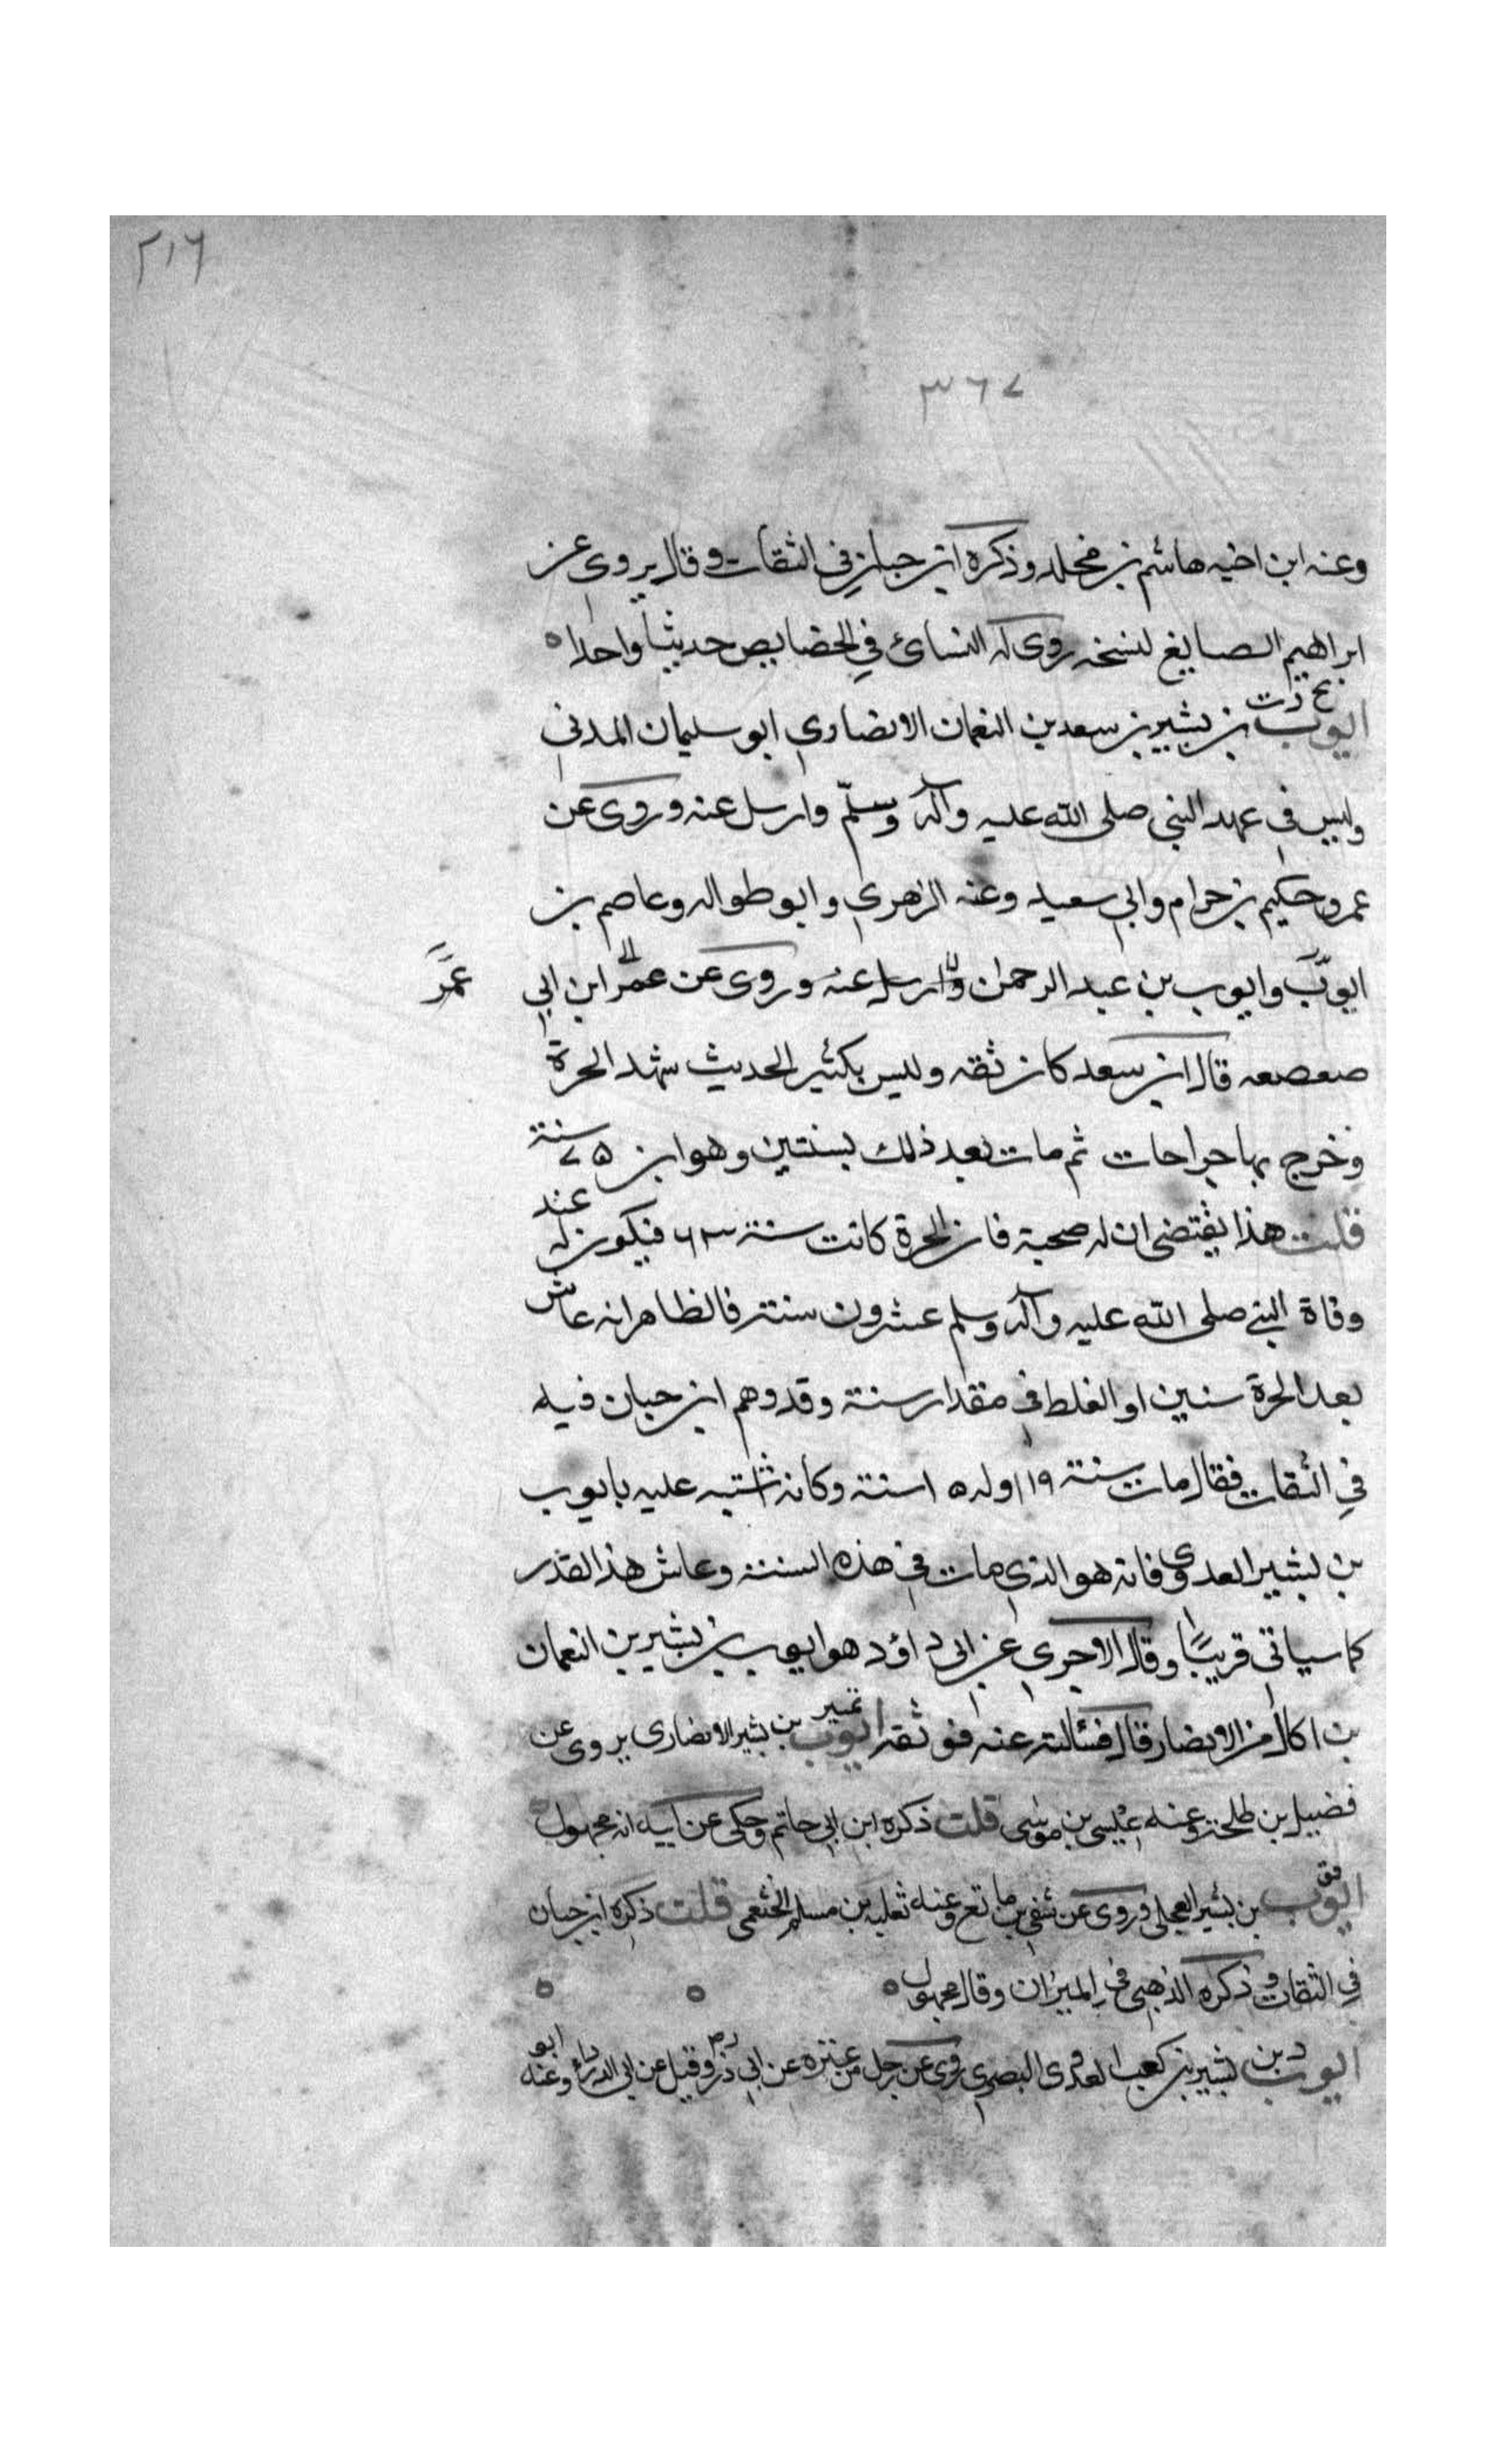 ٢١٦
٣٦٧
وعنه ابن اخيه هاشم بن مخلد وذكره ابن حبان في الثقات وقال يروى عن
ابراهيم الصايغ نسخه روى له النسائ في الخصايص حديثا واحدا ه
ايوب بن بشير بن سعد بن النعمان الانصاري ابو سليمان المدني
وليس في عهد النبي صلى الله عليه وآله وسلم وارسل عنه وروى عن
عمر وحكيم بن حرام وابي سعيد وعنه الزهري وابو طواله وعاصم بن
ايوب وايوب بن عبد الرحمن وارسل عنه وروى عن عمر ابن ابي
عمر
صعصعه قال ابن سعد كان ثقه وليس بكثير الحديث شهد الحرة
وخرج بها جراحات ثم مات بعد ذلك بسنتين وهو ابن ٧٥ سنة
قلت هذا يقتضى ان له صحبة فان الحرة كانت سنة ٦٣ فيكون له عند
وفاة النبي صلى الله عليه وآله وسلم عشرون سنة فالظاهر انه عاش
بعد الحرة سنين او الغلط في مقدار سنة وقد وهم ابن حبان فيه
في الثقات فقال مات سنة ١١٩ وله ١٠٥ سنة وكانه اشتبه عليه بايوب
بن بشير العدوي فانه هو الذي مات في هذه السنة وعاش هذا القدر
كما سياتي قريبًا وقال الاجري عن ابي داؤد هو ايوب بن بشير بن النعمان
بن اكال من الانصار قال فسئالته عنه فوثقه ايوب بن بشير الانصاري يروى عن
تمييز
فضيل بن طلحة وعنه عيسى بن موسى قلت ذكره ابن ابي حاتم وحكى عن ابيه انه مجهول
ايوب بن بشير العجلي وروى عن شفي بن ماتع وعنه ثعلبه بن مسلم الخثعمي قلت ذكره ابن حبان
في الثقات وذكره الذهبي في الميزان وقال مجهول ه ه ه
ايوب بن بشير بن كعب العدوى البصرى روى عن رجل من عنزه عن ابي ذر وقيل عن ابي الدرداء وعنه ابو